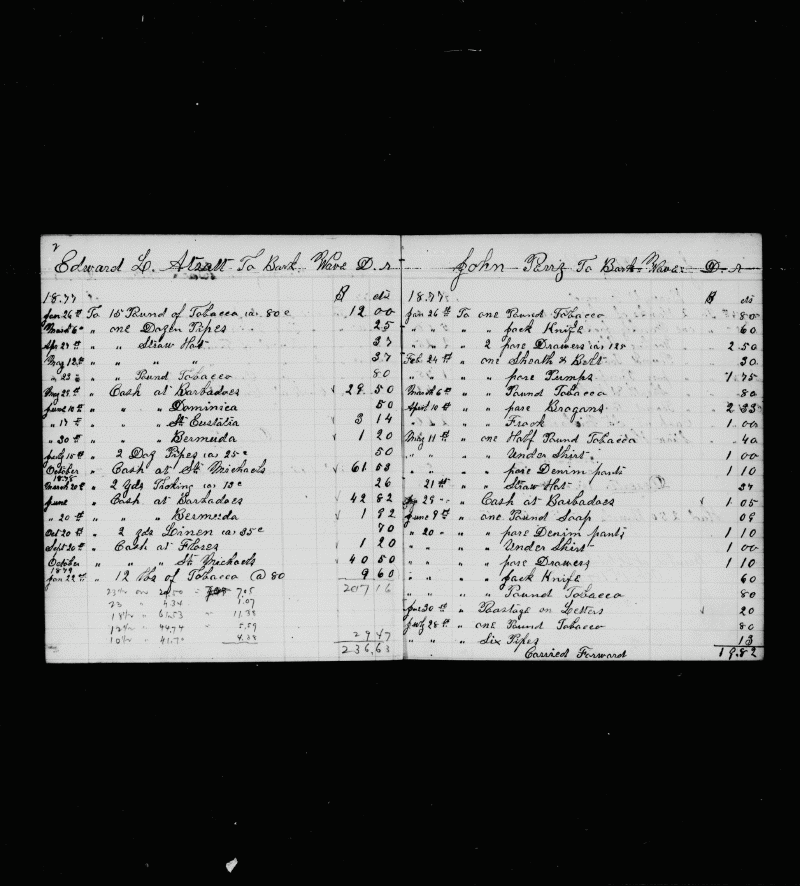 2
Edward L. To Bark Wave D.r
18.77 $ cts
Jan 26th To 15 Pound of Tobacco (a) 80 c 12 00
March 6 " one Dozen Pipes 25
Apr 24th " " Straw Hat 37
May 12th " " " " 37
" 23 " " Pound Tobacco 80
May 28th " Cash at Barbadoes √ 29 50
June 10th " " " Dominica 50
" 17th " " " St Eustatia √ 3 14
" 30th " " " Bermuda √ 1 20
July 15th " 2 Doz Pipes (a) 25 c 50
October " Cash at St Michaels √ 61 53
1878
March 20th " 2 yds (a) 13 c 26
June " Cash at Barbadoes √ 42 82
" 20th " " " Bermuda √ 1 92
Oct 20th " 2 yds Linen (a) 35 c 70
Sept 20th " Cash at Flores √ 1 20
October " " " St Michaels √ 40 50
1879
Jan 22nd " 12 lbs of Tobacco @ 80 9 60
207 16
29.50 " 7.05
23 " 4.34 1.07
18 " 61.53 " 11.38
44.74 " 5.59
10 " 41.70 " 4.38
29.47
236.63
John Perriz To Bark Wave D.r
18.77 $ cts
Jan 26th To one Pound Tobacco 80
" " " " Jack Knife 60
" " " 2 pare Drawers (a) 125 2 50
Feb. 24th " one Sheath & Belt 30
" " " " pare Pumps 1 75
March 6th " " Pound Tobacco 80
April 10th " " pare Brogans 2 33
" " " " Frock 1 00
May 11th " one Half Pound Tobacco 40
" " " " Under Shirt 1 00
" " " " pare Denim pants 1 10
" 21th " " Straw Hat 37
" 28 " Cash at Barbadoes √ 1 05
June 9th " one Pound Soap 09
" 20 " " pare Denim pants 1 10
" " " " Under Shirt 1 00
" " " " pare Drawers 1 10
" " " " Jack Knife 60
" " " " Pound Tobacco 80
June 30th " Poastage on Letters √ 20
July 28th " one Pound Tobacco 80
" " " Six Pipes 13
Carried Forward 19.82